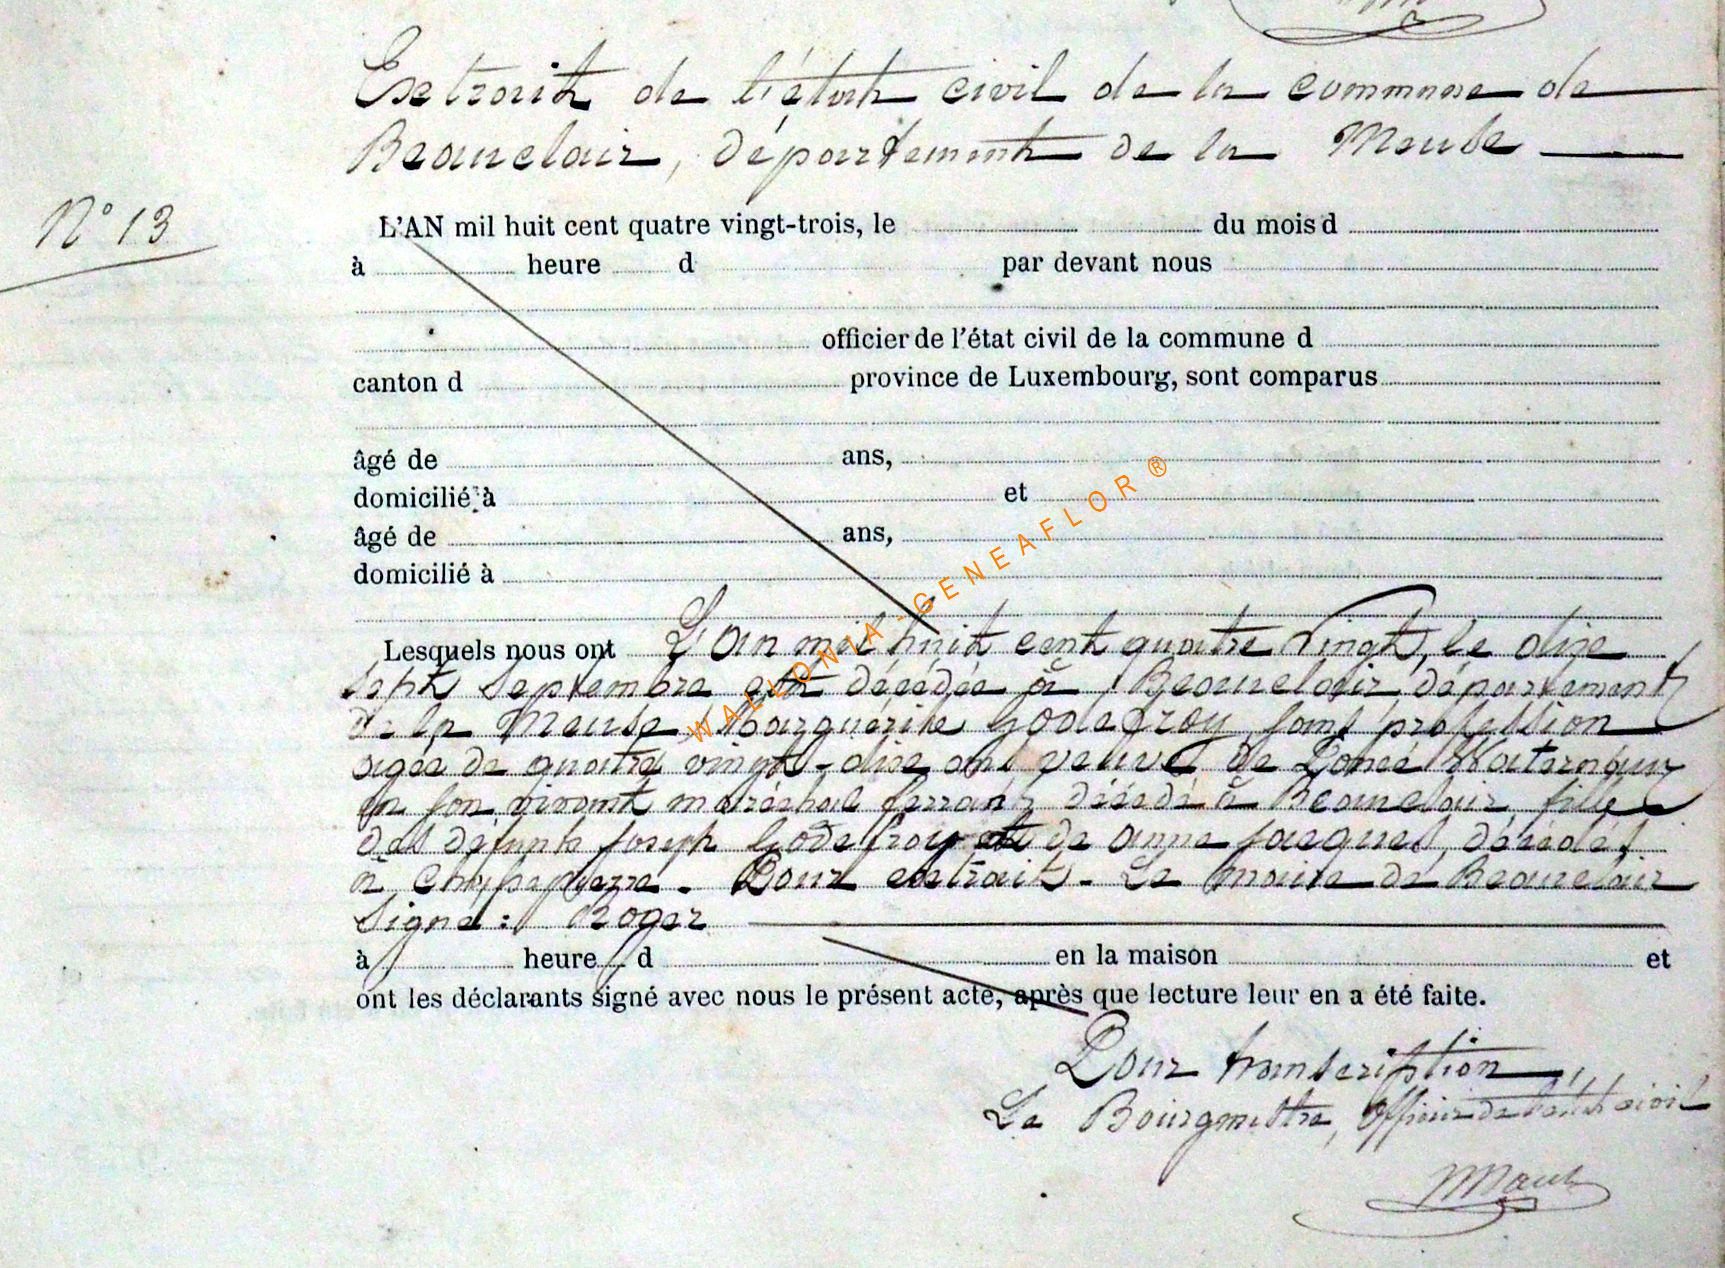 Extrait de l'état civil de la commune de
Beauclair, département de la Meuse
N° 13
L'AN mil huit cent quatre vingt-trois, le du mois d
à heure d par devant nous
officier de l'état civil de la commune d
canton d province de Luxembourg, sont comparus
âgé de ans,
domicilié à et
âgé de ans,
domicilié à
Lesquels nous ont L'an mil huit cent quatre vingt, le dix
sept Septembre est décédée à Beauclair, département
de la Meuse, Marguérite Godefroy, sans profession
agée de quatre vingt-dix ans veuve de Waternaux
en son vivant maréchal ferrant décédé à Beauclair, fille
des défunts Joseph Godefroy et de Anne Jacques, décédés
à Chassepierre. Pour extrait. Le maire de Beauclair
Signé: Roger
à heure d en la maison et
ont les déclarants signé avec nous le présent acte, après que lecture leur en a été faite.
Pour transcription,
Le Bourgmestre, Officier de l'état civil
WALLONIA-GENEAFLOR ®